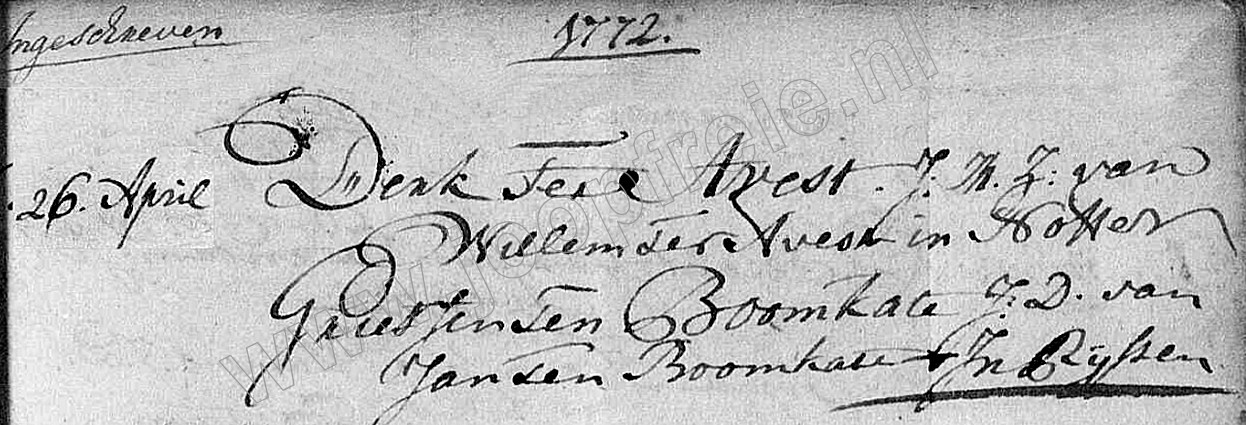 Ingeschreven 1772.
26. April Derk Ter Avest. J. M. Z: van
Willem Ter Avest in Notter
Griesjen Ten Boomkate J: D. van
Jan Ten Boomkate In Ryssen
www.joopfreie.nl